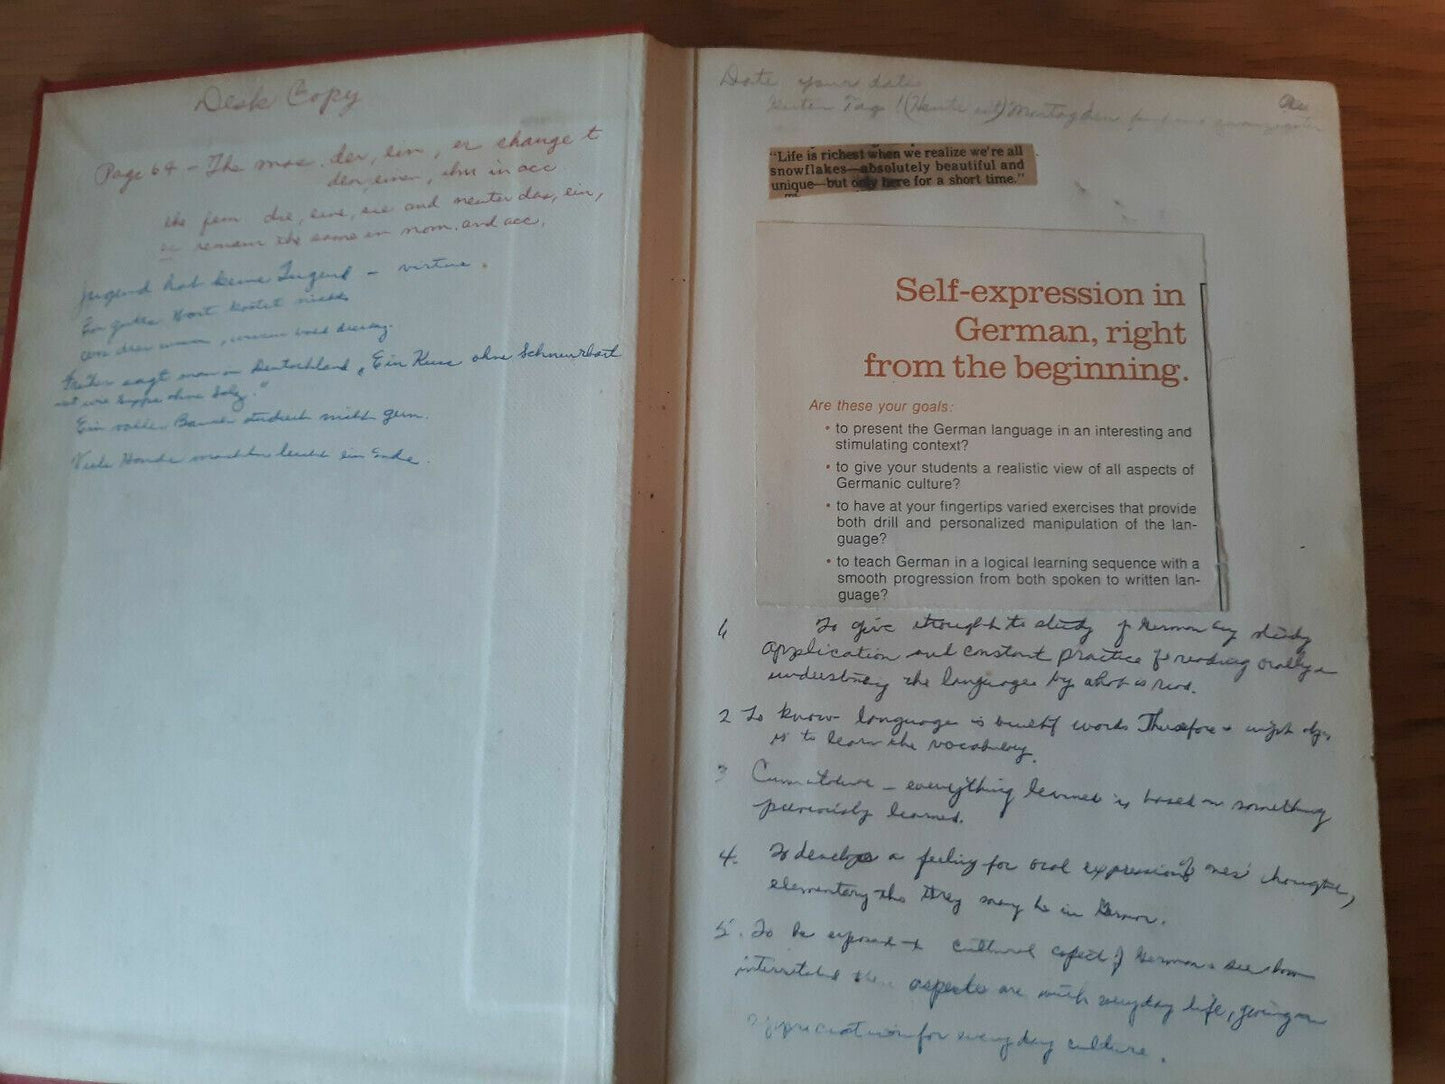 Desk Copy
Page 64 - The mas. der, ein, er change t
den einen, ihn in acc
the fem die, eine, sie and neuter das, ein,
remain the same in nom. and acc.
Jugend hat keine Tugend - virtue.
Ein gutes Wort kostet nichts
Früher sagt man in Deutschland „Ein Kuss ohne Schnurrbart
ist wie Suppe ohne Salz."
Ein voller Bauch studiert nicht gern.
Viele Hände machen leicht ein Ende.
Date your date
Guten Tag! (Heute ist) Montag den
"Life is richest when we realize we're all
snowflakes—absolutely beautiful and
unique—but only here for a short time."
Self-expression in
German, right
from the beginning.
Are these your goals:
• to present the German language in an interesting and
stimulating context?
• to give your students a realistic view of all aspects of
Germanic culture?
• to have at your fingertips varied exercises that provide
both drill and personalized manipulation of the lan-
guage?
• to teach German in a logical learning sequence with a
smooth progression from both spoken to written lan-
guage?
1 To give thought to study of German by study
application and constant practice of reading orally
the languages by what is read.
2 To know language is built of words Therefore
is to learn the vocabulary.
3 Cumulative - everything learned is based on something
previously learned.
4. To develop a feeling for oral expression of ones' thoughts,
elementary tho they may be in German.
5. To be exposed to cultural aspect of German & see how
interrelated these aspects are with everyday life, giving
appreciation for everyday culture.